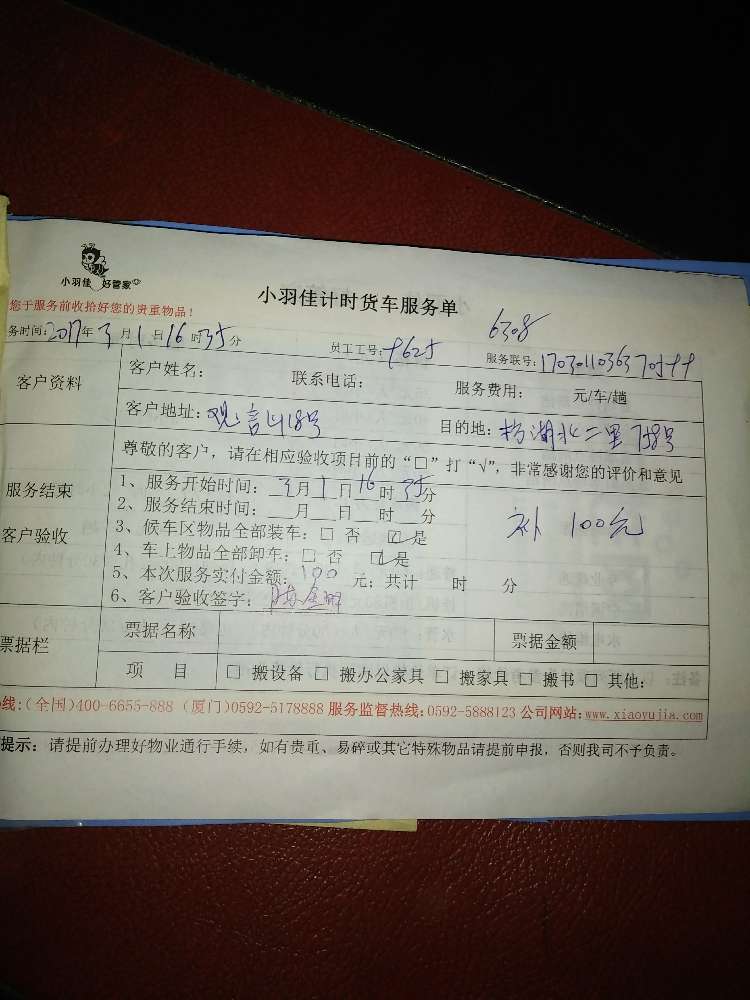 小羽佳 好管家
小羽佳计时货车服务单
您于服务前收拾好您的贵重物品！
6308
务时间：2017年3月1日16时35分 员工工号： 服务联号：
客户资料 客户姓名： 联系电话： 服务费用： 元/车/趟
客户地址：观音山18号 目的地：
尊敬的客户，请在相应验收项目前的“□”打“√”，非常感谢您的评价和意见
服务结束
客户验收
1、服务开始时间：3月1日16时35分
2、服务结束时间：__月__日__时__分
补 100元
3、候车区物品全部装车：□ 否 ☑是
4、车上物品全部卸车：□ 否 ☑是
5、本次服务实付金额：100 元；共计 时 分
6、客户验收签字：
票据栏 票据名称 票据金额
项 目 □ 搬设备 □ 搬办公家具 □ 搬家具 □ 搬书 □ 其他：
线：(全国)400-6655-888 (厦门)0592-5178888 服务监督热线：0592-5888123 公司网站：www.xiaoyujia.com
提示：请提前办理好物业通行手续，如有贵重、易碎或其它特殊物品请提前申报，否则我司不予负责。